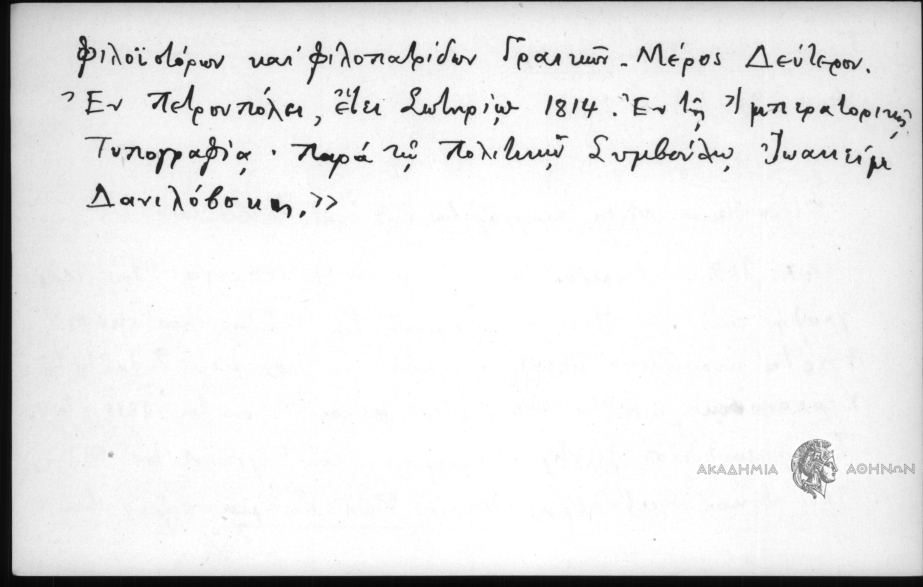 φιλοϊστόρων καὶ φιλοπατρίδων Γραικῶν. Μέρος Δεύτερον.
Ἐν Πετρουπόλει, ἔτει Σωτηρίῳ 1814. Ἐν τῇ Ἰμπερατορικῇ
Τυπογραφίᾳ. παρὰ τῷ Πολιτικῷ Συμβούλῳ Ἰωακεὶμ
Δανιλόβσκῃ.»
ΑΚΑΔΗΜΙΑ ΑΘΗΝΩΝ